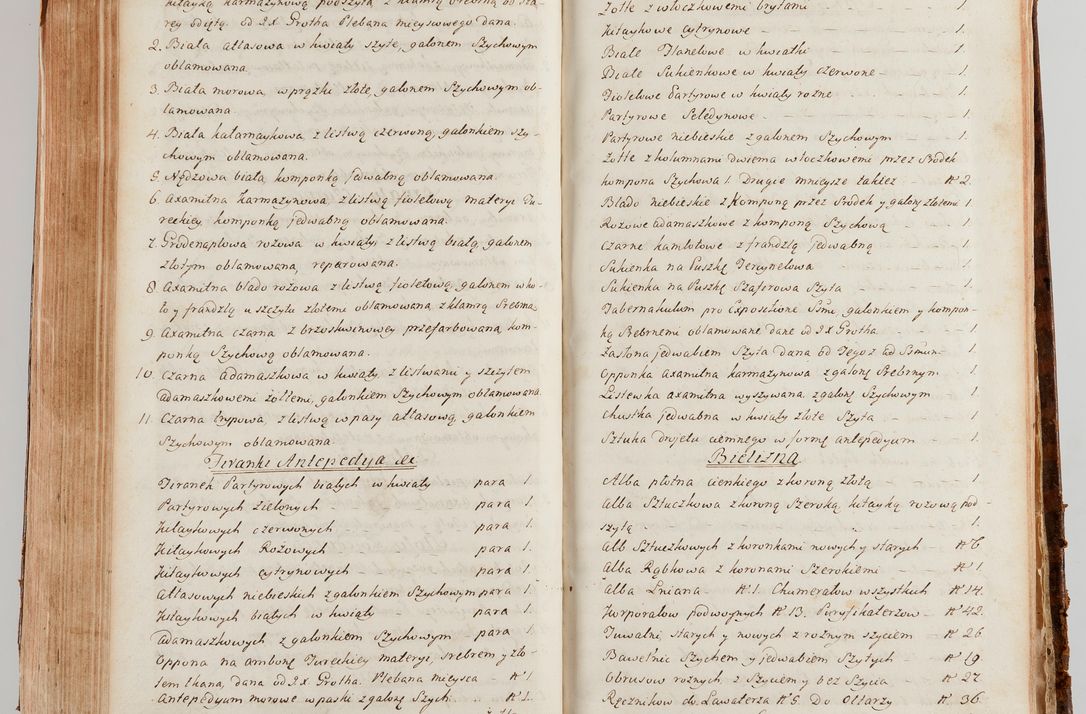 kitayką karmazynową podszyta z klamrą srebrną od sta-
rey odjętą. od JX Grotha Plebana mieysowego dana.
2. Biała attasowa w kwiaty szyte, galonem Szychowym
oblamowana.
3. Biała morowa w prążki złote, galonem Szychowym ob-
lamowana.
4. Biała kałamaykowa z listwą czerwoną, galonkiem szy-
chowym oblamowana.
5. Nędzowa biała komponką jedwabną oblamowana.
6. Axamitna karmazynowa z listwą fioletową materyi tu-
reckiey komponką jedwabną oblamowana.
7. Grodenaplowa rożowa w kwiaty, z listwą białą, galonem
złotym oblamowana, reparowana.
8. Axamitna blado rożowa z listwą fioletową, galonem w ko-
ło y frandzlą u szczytu złotemi oblamowana z klamrą Srebrną
9. Axamitna czarna z brzoskwinowey przefarbowana, kom-
ponką Szychową oblamowana.
10. Czarna adamaszkowa w kwiaty, z listwami y szczytem
adamaszkowemi żołtemi, galonkiem Szychowym oblamowana
11. Czarna trypowa, z listwą w pasy attasową, galonkiem
Szychowym oblamowana.
Firanki Antepedya etc
Firanek Partyrowych białych w kwiaty para 1.
Partyrowych zielonych - para 1.
Kitaykowych czerwonych - para 1.
Kitaykowych Rożowych para 1.
Kitaykowych cytrynowych - para 1.
Attasowych niebieskich z galonkiem Szychowym para 1.
Kitaykowych białych w kwiaty - para 1.
Adamaszkowych z galonkiem Szychowym para 1.
Oppona na ambonę Tureckiey materyi, srebrem y zło-
tem tkana, dana od JX. Grotha. Plebana mieysca - No 1.
Antepedyum morowe w paski z galonę Szych: - No 1.
Zołte z włoczkowemi brytami - 1.
Kitaykowe cytrynowe - 1.
Białe Flanelowe w kwiatki - 1.
Białe Sukienkowe w kwiaty czerwone - 1.
Fioletowe Partyrowe w kwiaty rożne - 1.
Partyrowe Seledynowe - 1.
Partyrowe niebieskie z galonem Szychowym 1.
Zołte z kolumnami dwiema włoczkowemi przez Srodek
kompona Szychowa 1. Drugie mnieysze takież - No 2.
Blado niebieskie z Komponą przez Srodek y galonę złotemi 1.
Rożowe adamaszkowe z komponą Szychową - 1.
Czarne kamlotowe z frandzlą jedwabną - 1.
Sukienka na Puszkę Tercynelowa 1.
Sukienka na Puszkę Szafirowa Szyta - 1.
Tabernakulum pro Expositione SSmi, galonkiem y kompon-
ką Srebrnemi oblamowane dane od JX Grotha - 1.
Zasłona jedwabiem Szyta dana od Tegoż ad SSmum - 1.
Opponka axamitna karmazynowa z galonę Srebrnym 1.
Listewka axamitna wyszywana z galonę Szychowym 1.
Chustka jedwabna w kwiaty złote Szyta - 1.
Sztuka drojetu ciemnego w formę antepedyum - 1.
Bielizna
Alba płotna cienkiego z koroną złotą - 1.
Alba Sztuczkowa z koroną Szeroką, kitayką rożową pod-
szytą - 1.
Alb Sztuczkowych z koronkami nowych y starych - No 6.
Alba Rąbkowa z koronami Szerokiemi - No 1.
Alba Lniana - No 1. Chumerałow wszystkich No 14.
Korporałow podwoynych No 13. Puryfikaterzow - No 42.
Tuwalni starych y nowych z rożnym szyciem No 26.
Bawełnic Szychem y jedwabiem Szytych - No 19.
Obrusow rożnych, z Szyciem y bez Szycia - No 27.
Ręcznikow do Lawaterza No 5. Do Ołtarzy - No 36.